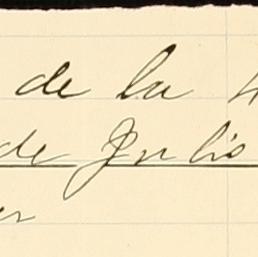 de la
de Julio